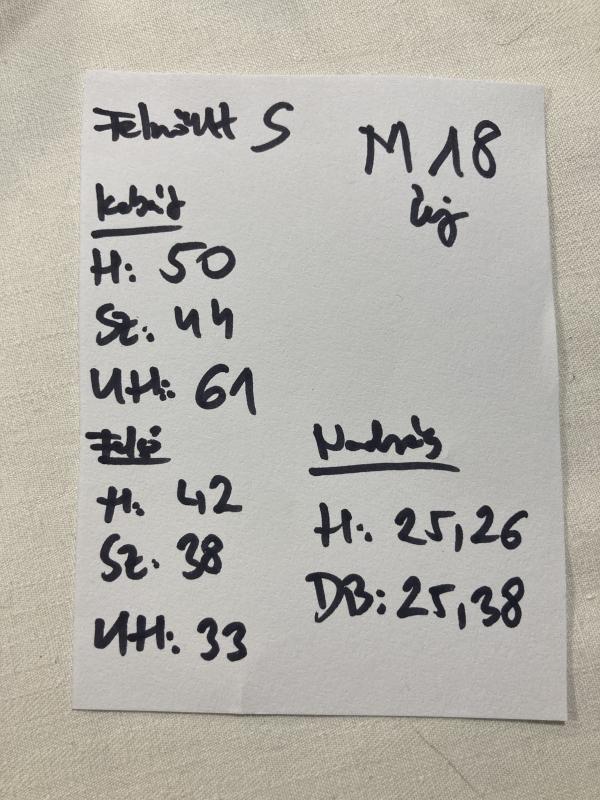 Felnőtt S
M 18
Kabát
H: 50
Sz: 44
UH: 61
Felső
H: 42
Sz. 38
UH: 33
Nadrág
H: 25,26
DB: 25,38